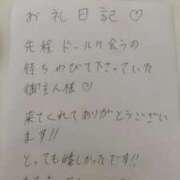 お礼日記♡
先程 ドールタ会うの
待ちわびて下さっていた
御主人様♡
来てくれてありがとうござい
ます!!
とっても嬉しかったです!!